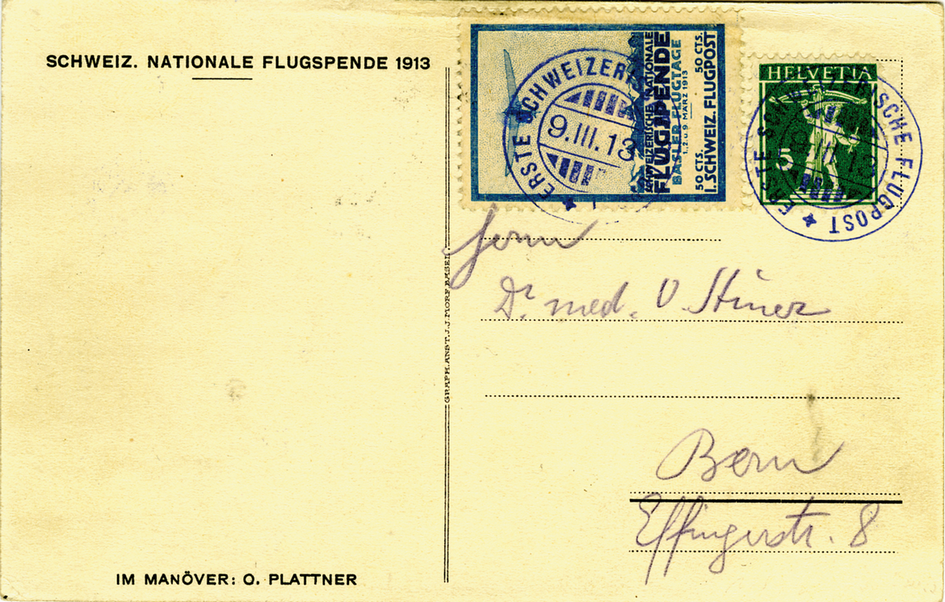 SCHWEIZ. NATIONALE FLUGSPENDE 1913
SCHWEIZERISCHE NATIONALE
FLUGSPENDE
BASLER FLUGTAGE
50 CTS. 50 CTS.
I. SCHWEIZ. FLUGPOST
ERSTE SCHWEIZERI
9.III.13
HELVETIA
5
ERSTE SCHWEIZERISCHE FLUGPOST
III.13
Herrn
Dr. med. O Stiner
Bern
Effingerstr. 8
GRAPH. ANST. J.J. MORF BASEL
IM MANÖVER: O. PLATTNER